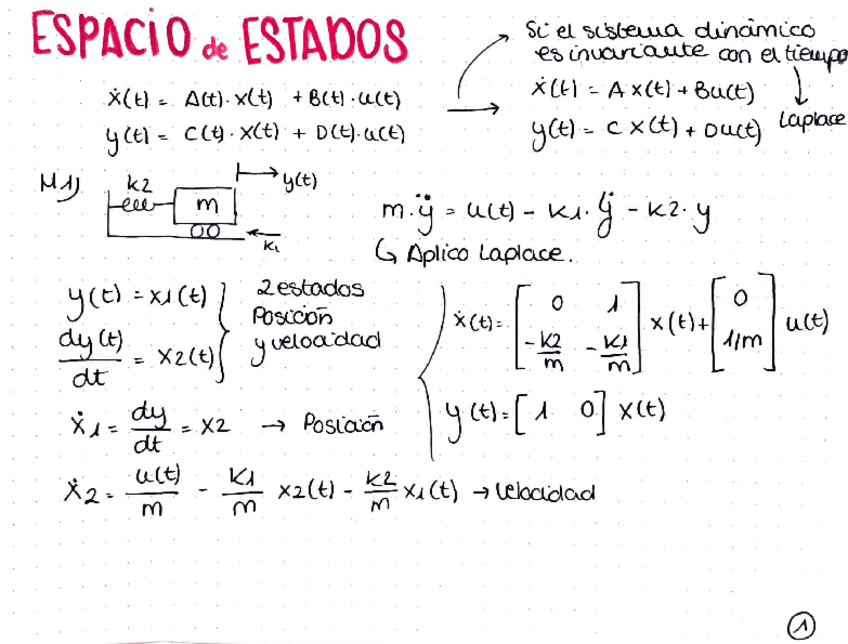 ESPACIO de ESTADOS
Si el sistema dinámico
es invariante con el tiempo
ẋ(t) = A(t)·x(t) + B(t)·u(t)
y(t) = C(t)·x(t) + D(t)·u(t)
ẋ(t) = A x(t) + Bu(t)
y(t) = C x(t) + Du(t)
Laplace
M1)
k2
m
y(t)
K1
m·ÿ = u(t) - K1·ẏ - K2·y
↳ Aplico Laplace.
y(t) = x1(t)
dy(t)/dt = x2(t)
2 estados
Posición
y velocidad
ẋ(t) = [0 1; -K2/m -K1/m] x(t) + [0; 1/m] u(t)
y(t) = [1 0] x(t)
ẋ1 = dy/dt = x2 → Posición
ẋ2 = u(t)/m - K1/m x2(t) - K2/m x1(t) → Velocidad
1